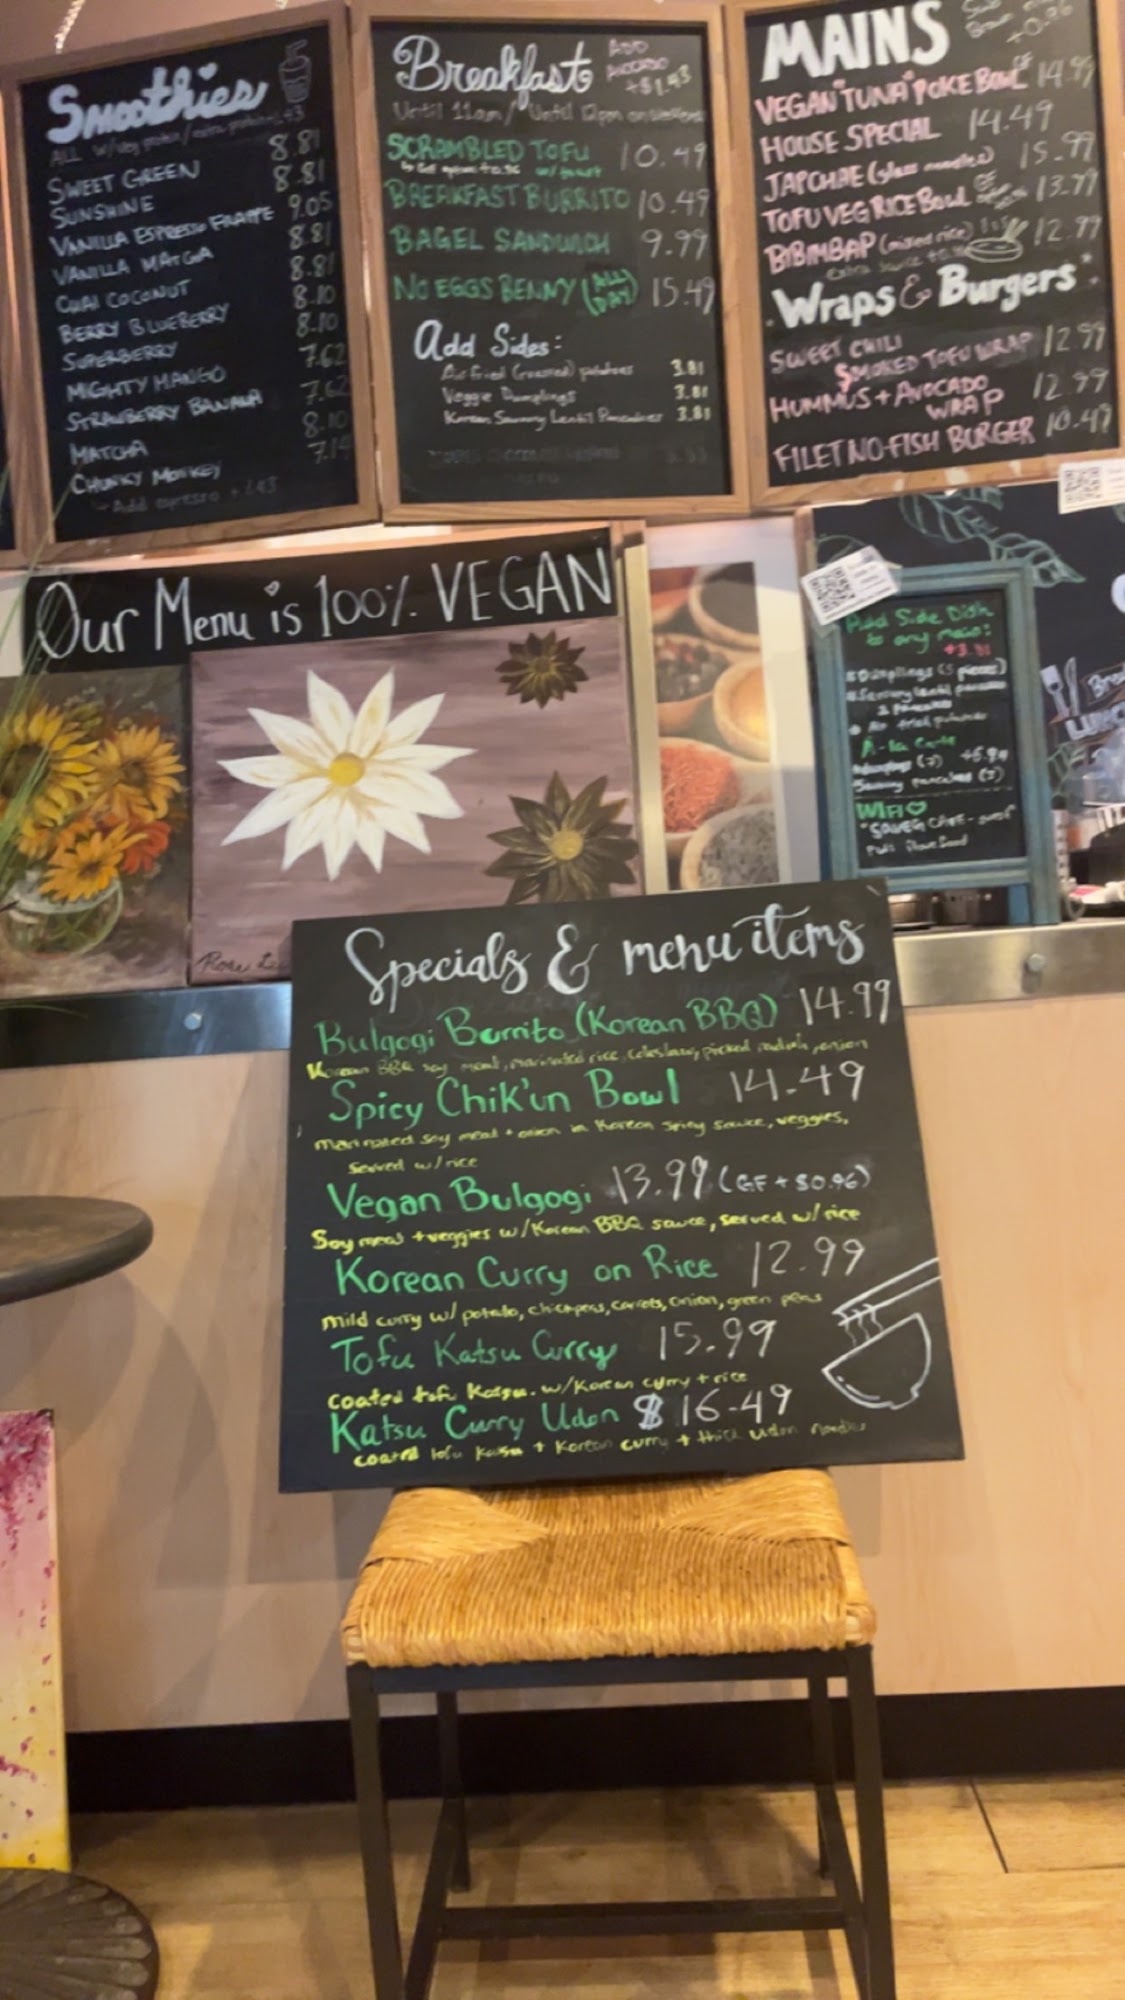 Smoothies
8.81
SWEET GREEN 8.81
SUNSHINE 9.05
VANILLA ESPRESSO FRAPPE 8.81
VANILLA MATCHA 8.81
CHAI COCONUT 8.10
BERRY BLUEBERRY 8.10
SUPERBERRY 7.62
MIGHTY MANGO 7.62
STRAWBERRY BANANA 8.10
MATCHA 7.14
CHUNKY MONKEY
Add espresso + 1.43
Breakfast
ADD AVOCADO +$1.43
Until 11am / Until 12pm on weekends
SCRAMBLED TOFU 10.49
BREAKFAST BURRITO 10.49
BAGEL SANDWICH 9.99
NO EGGS BENNY (ALL DAY) 15.49
Add Sides:
Air fried (roasted) potatoes 3.81
Veggie Dumplings 3.81
Korean Savoury Lentil Pancakes 3.81
MAINS
VEGAN "TUNA" POKE BOWL GF 14.99
HOUSE SPECIAL 14.49
JAPCHAE (glass noodles) 15.99
TOFU VEG RICE BOWL 13.99
BIBIMBAP (mixed rice) 12.99
Wraps & Burgers
SWEET CHILI
SMOKED TOFU WRAP 12.99
HUMMUS + AVOCADO
WRAP 12.99
FILET NO-FISH BURGER 10.49
Our Menu is 100% VEGAN
Add Side Dish
to any main:
+3.81
Dumplings (3 pieces)
Savoury lentil pancakes
2 pancakes
Air fried potatoes
A-la Carte
Savoury pancakes (3)
WIFI
Rose L.
Specials & menu items
Bulgogi Burrito (Korean BBQ) 14.99
Korean BBQ soy meat, marinated rice, coleslaw, pickled radish, onion
Spicy Chik'un Bowl 14.49
marinated soy meat + onion in Korean spicy sauce, veggies,
served w/rice
Vegan Bulgogi 13.99 (GF + $0.96)
Soy meat + veggies w/Korean BBQ sauce, served w/rice
Korean Curry on Rice 12.99
mild curry w/ potato, chickpeas, carrots, onion, green peas
Tofu Katsu Curry 15.99
coated tofu Katsu. w/Korean curry + rice
Katsu Curry Udon $16.49
coated tofu katsu + Korean curry + thick udon noodles